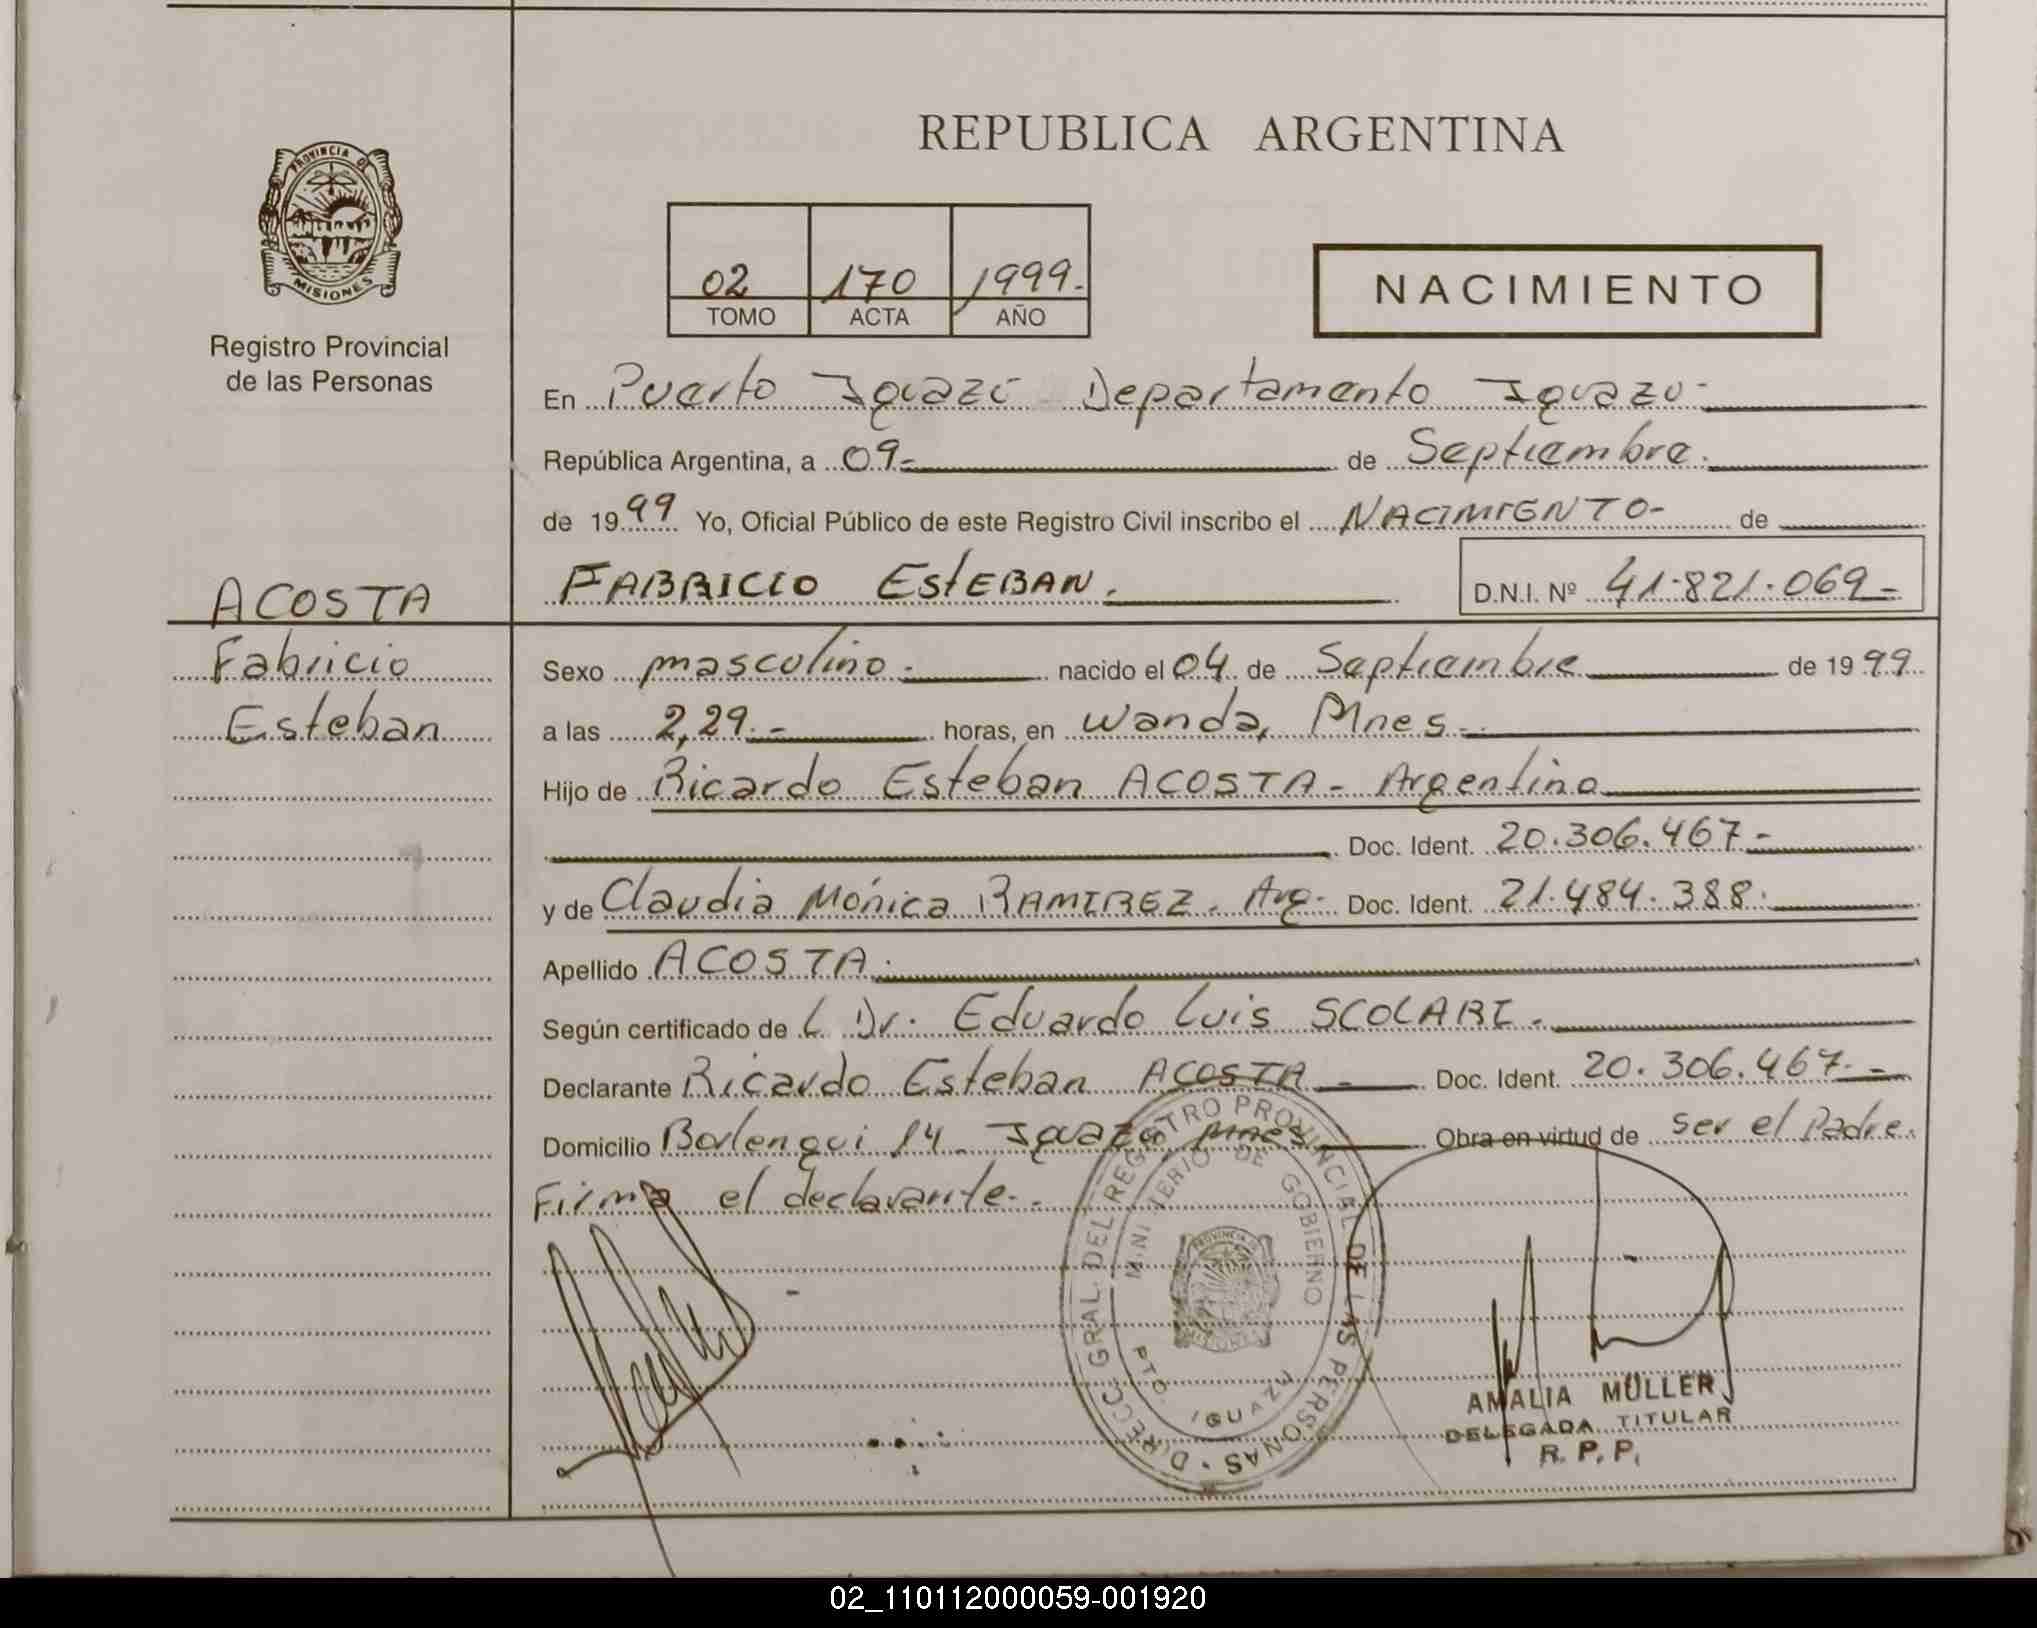 REPUBLICA ARGENTINA
PROVINCIA DE
MISIONES
Registro Provincial
de las Personas
02 170 1999.
TOMO ACTA AÑO
NACIMIENTO
En Puerto Iguazú Departamento Iguazú-
República Argentina, a 09.- de Septiembre.
de 1999 Yo, Oficial Público de este Registro Civil inscribo el NACIMIENTO- de
FABRICIO ESTEBAN. D.N.I. Nº 41.821.069-
ACOSTA
Fabricio
Esteban
Sexo masculino.- nacido el 04 de Septiembre de 1999
a las 2,29.- horas, en Wanda, Mnes.-
Hijo de Ricardo Esteban ACOSTA- Argentino
Doc. Ident. 20.306.467-
y de Claudia Mónica RAMIREZ. Arg- Doc. Ident. 21.484.388.
Apellido ACOSTA.
Según certificado de L Dr. Eduardo Luis SCOLARI.
Declarante Ricardo Esteban ACOSTA - Doc. Ident. 20.306.467.-
Domicilio 14 Iguazú Mnes Obra en virtud de ser el Padre.
Firma el declarante.-
DIRECC. GRAL. DEL REGISTRO PROVINCIAL DE LAS PERSONAS
MINISTERIO DE GOBIERNO
PTO. IGUAZU
AMALIA MÜLLER
DELEGADA TITULAR
R. P. P.
02_110112000059-001920